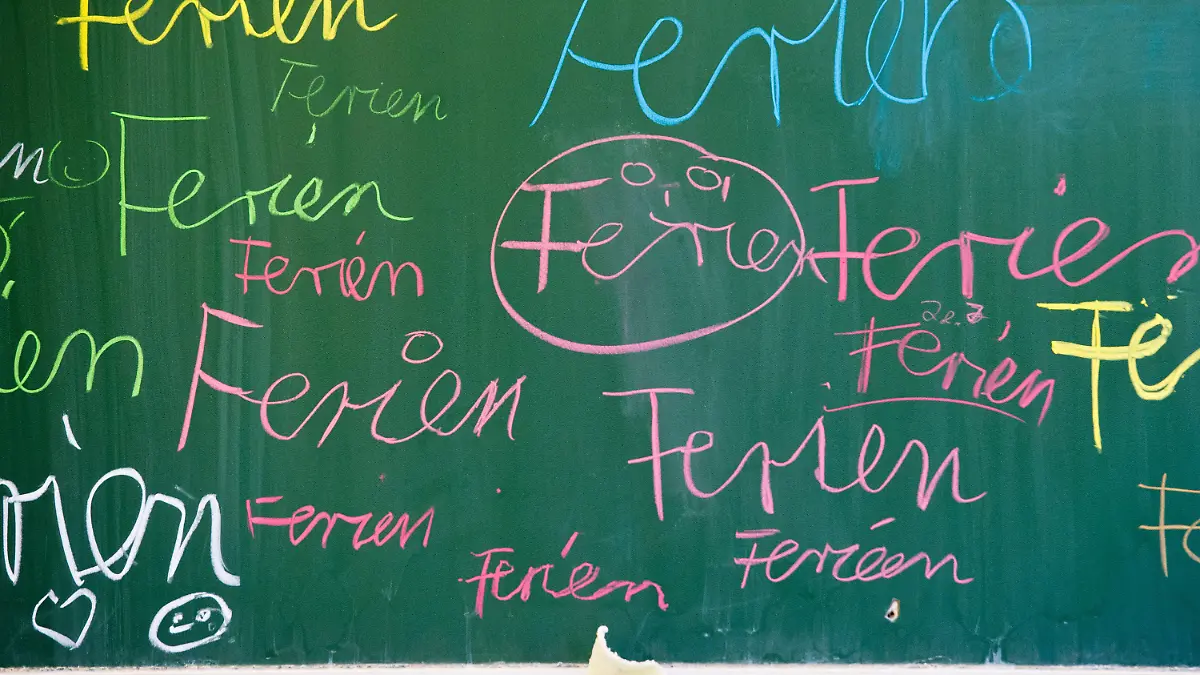 Ferien
Ferien
Ferien
Ferien
Ferien
Ferien
Ferien
Ferien
Ferien
Ferien
en
Ferien
Ferien
rien
Ferien
Ferien
Ferien